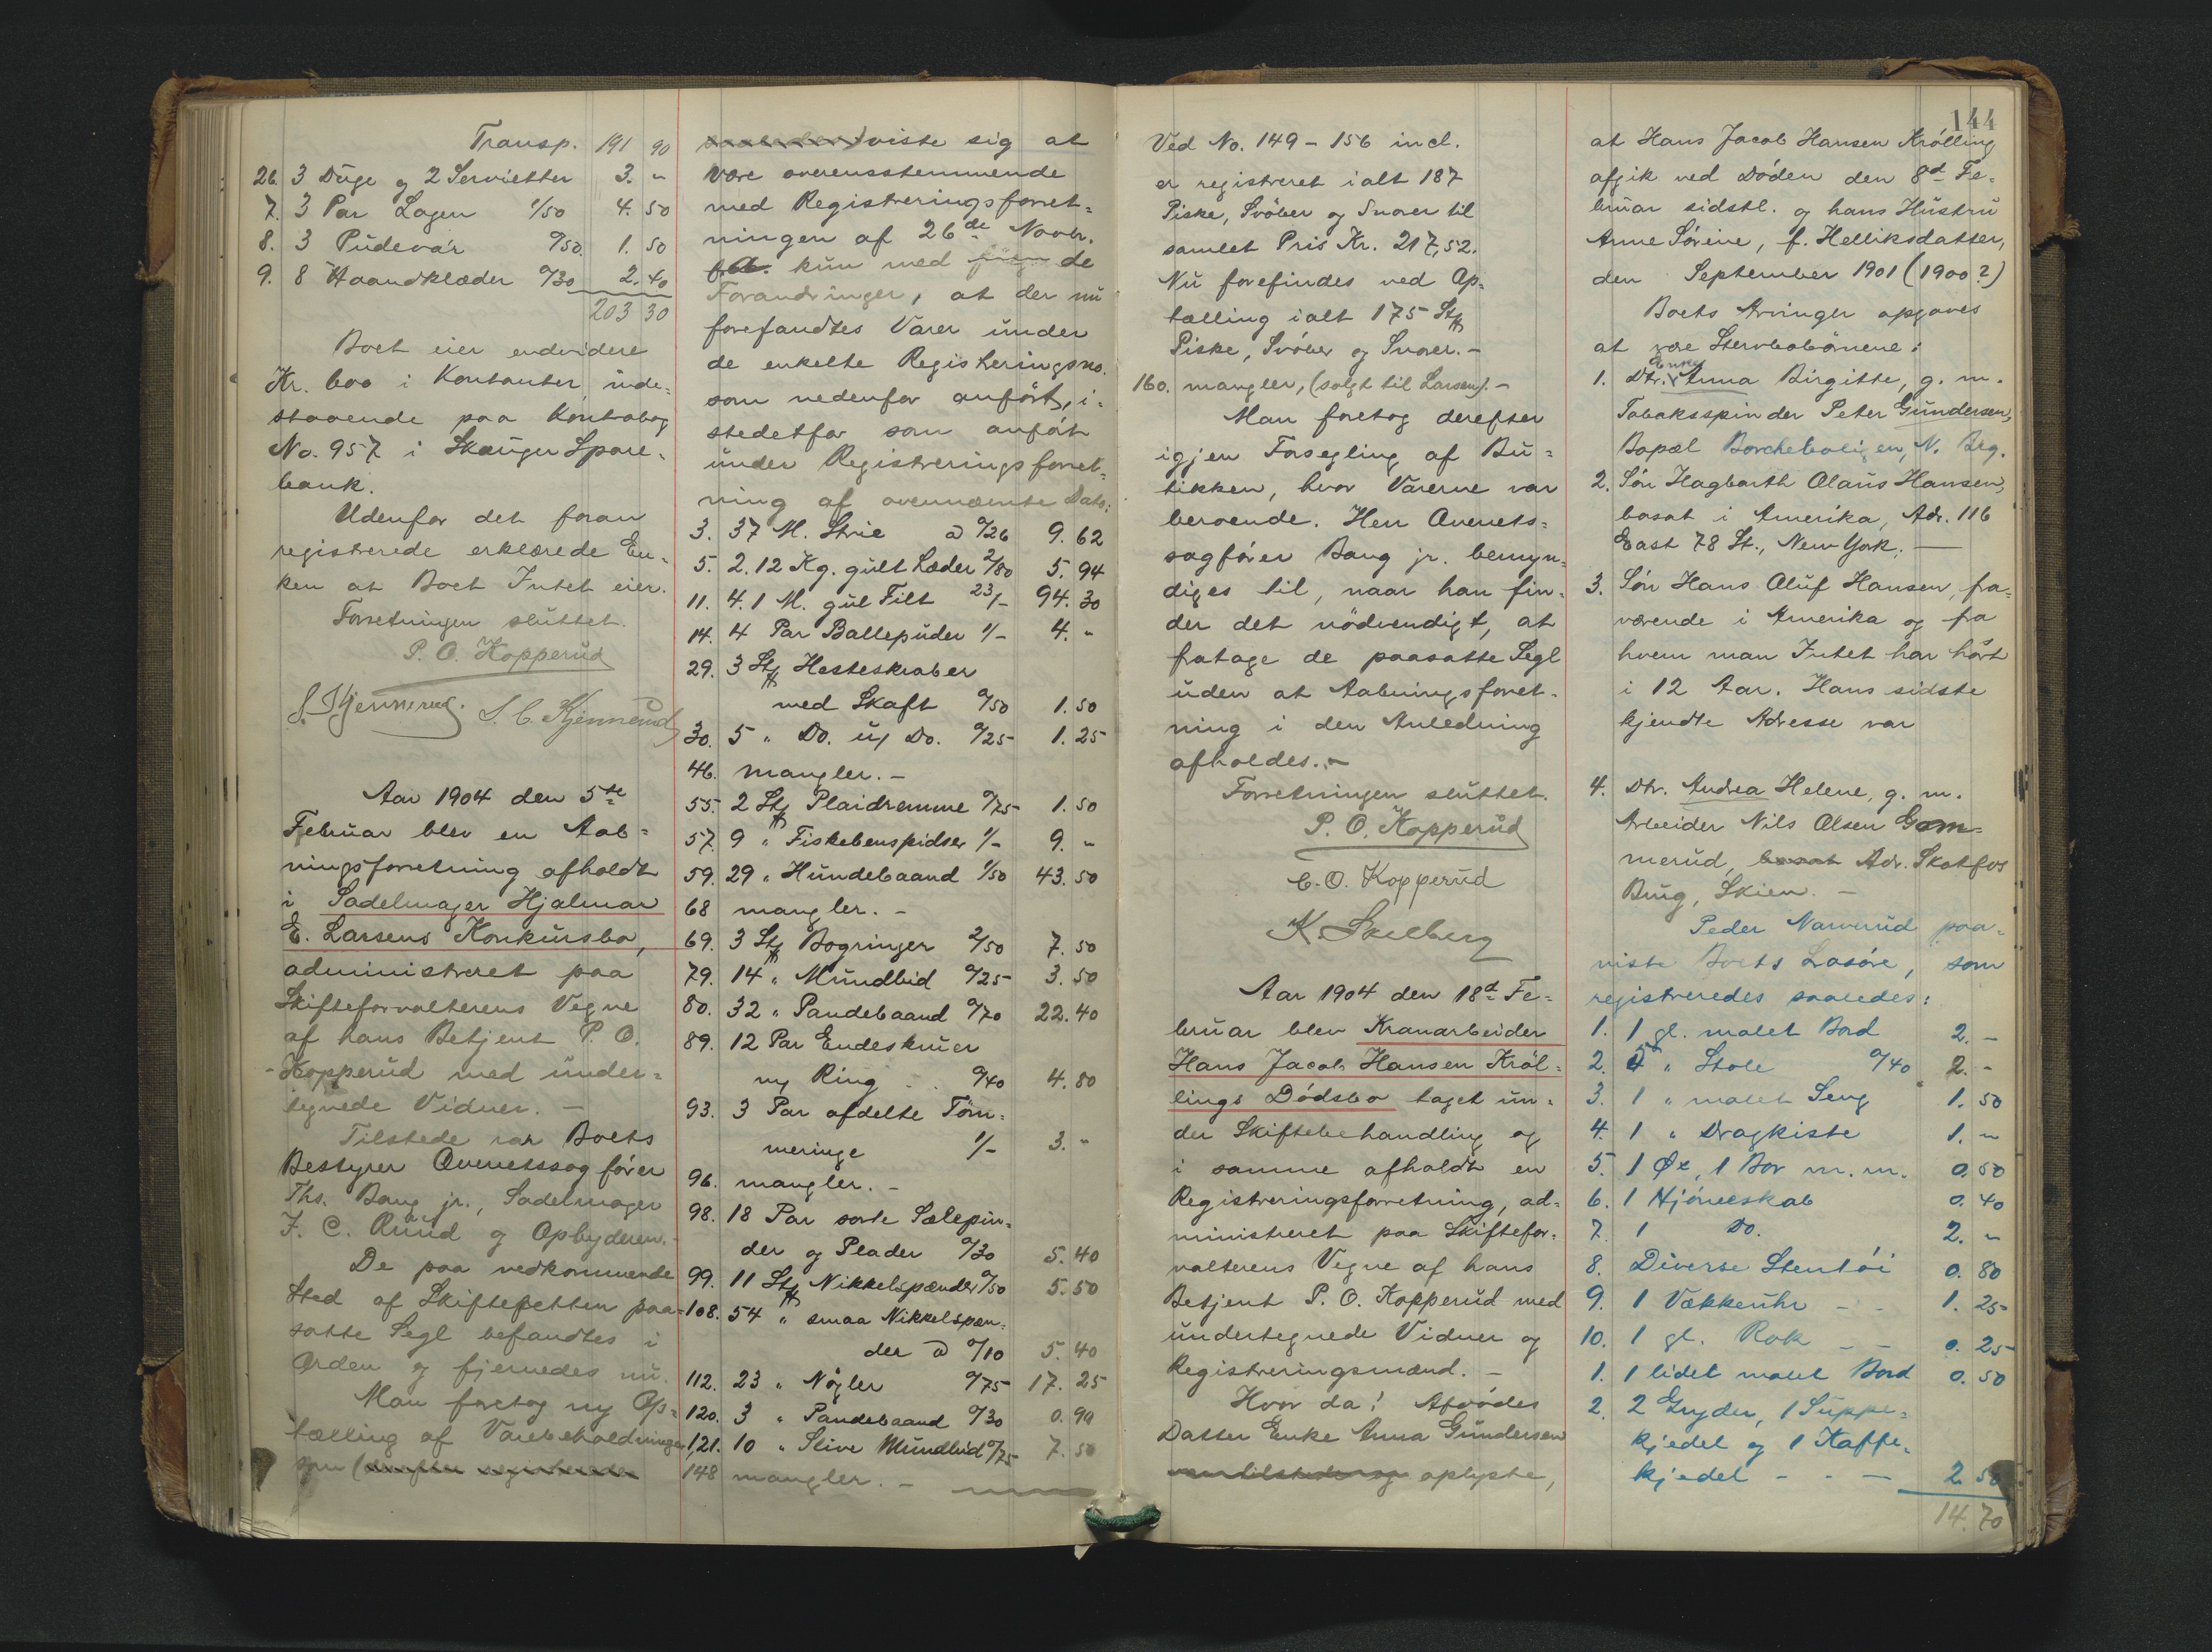 Transp. 191 90
26. 3 Duge og 2 Servietter 3. "
7. 3 Par Lagen 1/50 4. 50
8. 3 Pudevar 0/50. 1. 50
9. 8 Haandklæder 0/30 2. 40
203 30
Boet eier endvidere
Kr. 600 i Kontanter inde=
staaende paa Kontrabog
No. 957 i Skauger Spare=
bank.
Udenfor det foran
registrerede erklærede En=
ken at Boet Intet eier.
Forretningen sluttet.
P. O. Kopperud
Aar 1904 den 5te
Februar blev en Aab=
ningsforretning afholdt
i Sadelmager Hjalmar
E. Larsens Konkursbo,
administreret paa
Skifteforvalterens Vegne
af hans Betjent P. O.
Kopperud med under=
tegnede Vidner. –
Tilstede var Boets
Bestyrer Overretssagfører
Ths. Bang jr., Sadelmager
F. C. Ruud og Opbyderen.
De paa vedkommende
Sted af Skifteretten paa=
satte Segl befandtes i
Orden og fjernedes nu.
Man foretog ny Op=
tælling af Varebeholdningen
som (derefter registrerede
viste sig at
være overensstemmende
med Registreringsforret=
ningen af 26de Novbr.
f. A. kun med de
Forandringer, at der nu
forefandtes Varer under
de enkelte Registreringsno.
som nedenfor anført, i=
stedetfor som anført
under Registreringsforret=
ning af ovennævnte Dato:
3. 37 M. Strie a 0/26 9. 62
5. 2.12 Kg. gult Læder 2/80 5. 94
11. 4.1 M. gul Filt 23/- 94. 30
14. 4 Par Ballepuder 1/- 4. "
29. 3 Stk Hesteskraber
med Skaft 0/50 1. 50
30. 5 " Do. u/ Do. 0/25 1. 25
46. mangler. –
55. 2 Stk Plaidremme 0/75 1. 50
57. 9 " Fiskebenspidser 1/- 9. "
59. 29 " Hundebaand 1/50 43. 50
68 mangler. –
69. 3 Stk Bogringer 2/50 7. 50
79. 14 " Mundbid 0/25 3. 50
80. 32 " Pandebaand 0/70 22. 40
89. 12 Par Endeskruer
m/ Ring 0/40 4. 80
93. 3 Par afdelte Töm=
meringe 1/- 3. "
96. mangler. –
98. 18 Par sorte Sælepin=
der og Plader 0/30 5. 40
99. 11 Stk Nikkelspænder 0/50 5. 50
108. 54 " smaa Nikkelspæn=
der a 0/10 5. 40
112. 23 " Nøgler 0/75 17. 25
120. 3 " Pandebaand 0/30 0. 90
121. 10 " Stive Mundbid 0/75 7. 50
148 mangler. –
Ved No. 149 – 156 incl.
er registreret ialt 187
Piske, Svöber og Snorer til
samlet Pris Kr. 217,52.
Nu forefindes ved Op=
tælling ialt 175 Stk
Piske, Svöber og Snorer. –
160. mangler, (solgt til Larsen). –
Man foretog derefter
igjen Forsegling af Bu=
tikken, hvor Varerne var
beroende. Herr Overrets=
sagfører Bang jr. bemyn=
diges til, naar han fin=
der det nödvendigt, at
fratage de paasatte Segl
uden at Aabningsforret=
ning i den Anledning
afholdes. –
Forretningen sluttet.
P. O. Kopperud
C. O. Kopperud
K. Skelberg
Aar 1904 den 18d Fe=
bruar blev Kranarbeider
Hans Jacob Hansen Kröl=
lings Dödsbo taget un=
der Skiftebehandling og
i samme afholdt en
Registreringsforretning, ad=
ministreret paa Skiftefor=
valterens Vegne af hans
Betjent P. O. Kopperud med
undertegnede Vidner og
Registreringsmænd. –
Hvor da: Afdödes
Datter Enke Anna Gundersen
var tilstede og oplyste,
144
at Hans Jacob Hansen Krölling
afgik ved Döden den 8d Fe=
bruar sidstl. og hans Hustru
Anne Sörine, f. Helliksdatter,
den September 1901 (1900?)
Boets Arvinger opgaves
at være Stervbobörnene:
Enke
1. Dtr. Anna Birgitte, g. m.
Tobaksspinder Peter Gundersen,
Bopæl Borcheboligen, N. Brg.
2. Sön Hagbarth Olaus Hansen,
bosat i Amerika, Adr. 116
East 78 St., New York. –
3. Sön Hans Oluf Hansen, fra=
værende i Amerika og fra
hvem man Intet har hört
i 12 Aar. Hans sidste
kjendte Adresse var
4. Dtr. Andrea Helene, g. m.
Arbeider Nils Olsen Gom=
merud, bosat Adr. Skotfos
Brug, Skien. –
Peder Narverud paa=
viste Boets Lösöre, som
registreredes saaledes:
1. 1 gl. malet Bord 2. –
2. 5 " Stole 0/40 2. –
3. 1 " malet Seng 1. 50
4. 1 " Dragkiste 1. "
5. 1 Øx, 1 Bor m. m. 0. 50
6. 1 Hjörneskab 0. 40
7. 1 Do. 2. "
8. Diverse Stentöi 0. 80
9. 1 Vækkeruhr – – 1. 25
10. 1 gl. Rok – – 0. 25
1. 1 lidet malet Bord 0. 50
2. 2 Gryder, 1 Suppe=
kjedel og 1 Kaffe=
kjedel – – – 2 50
14. 70